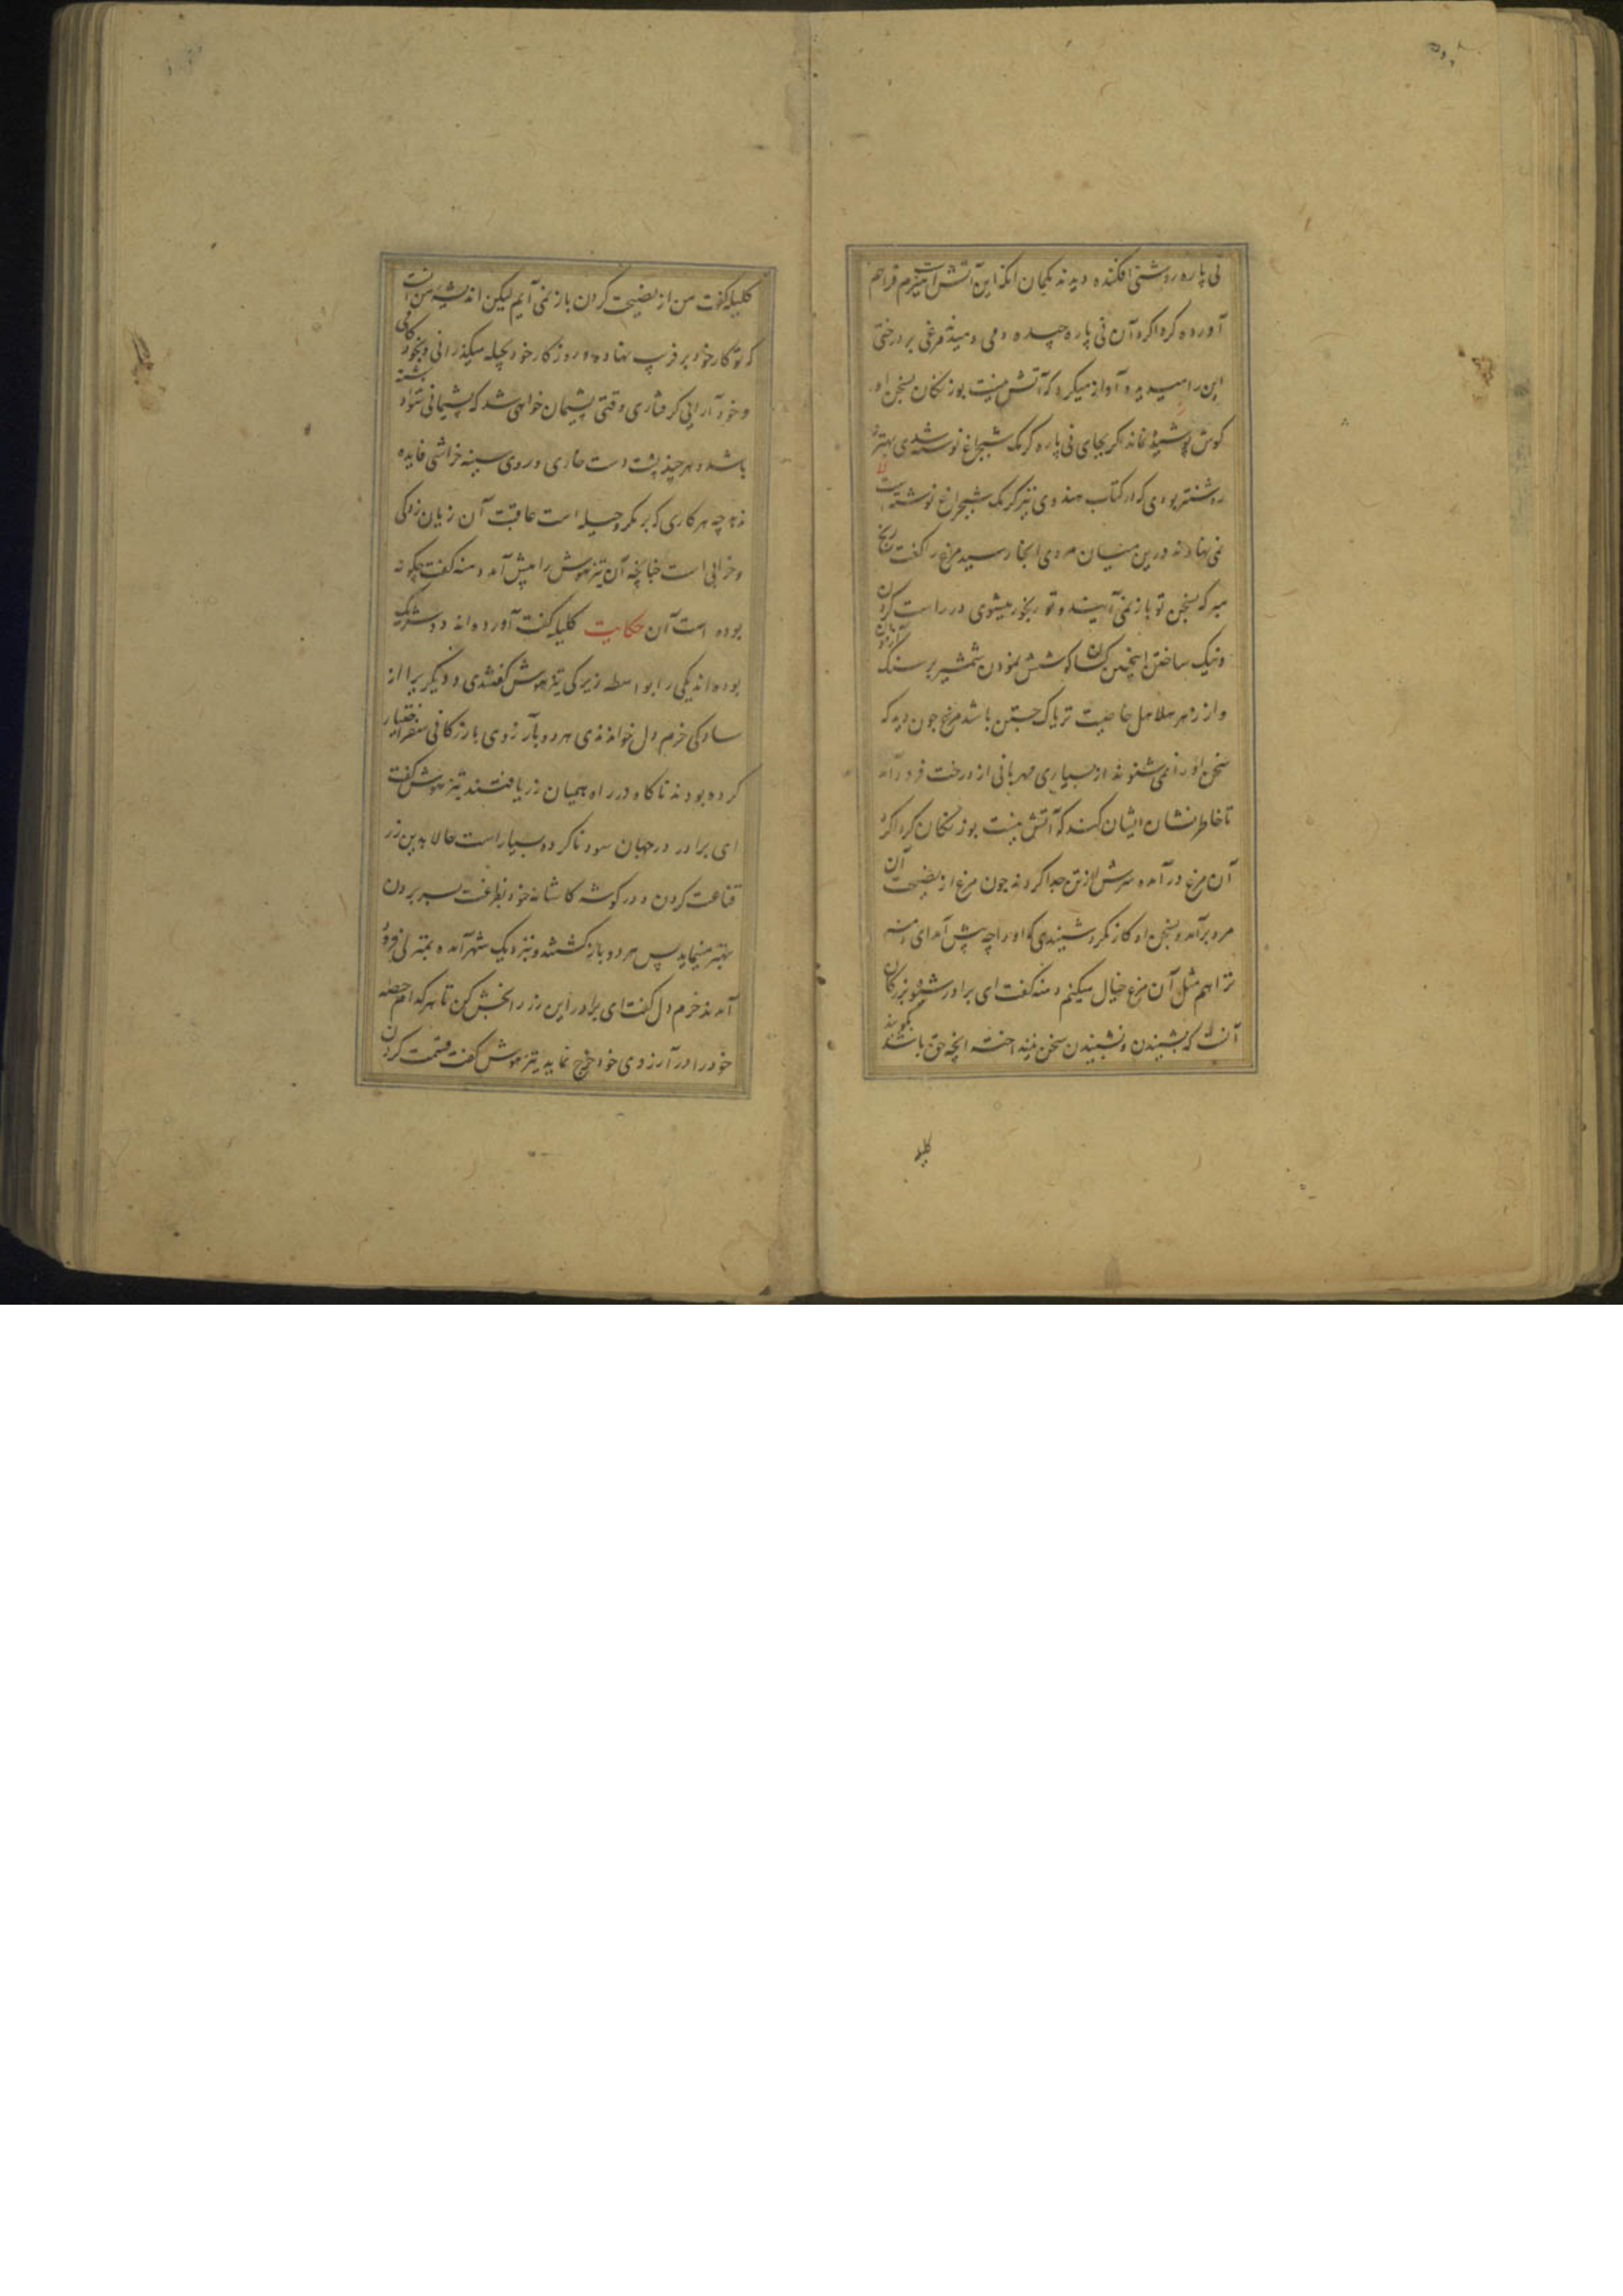 نی پاره روشنی افکنده دیدند بگمان انکه این آتش است هیزم فراهم
آورده گرداگرد آن نی پاره چیده دمی دمیدند مرغی بر درختی
این را میدید و آواز میکرد که آتش نیست بوزنگان بسخن او
کوش پوشیده نماند اگر بجای نی پاره کرمک شبچراغ نوشته شدی بهتر و
روشنتر بودی که در کتاب هندوی نیز کرمک شبچراغ نوشته است
نمی نهادند درین میان مردی آنجا رسید مرغ را گفت رنج
مبر که بسخن تو باز نمی آیند و تو رنجور میشوی در راست کردن
و نیک ساختن اینچنین کسان کوشش نمودن شمشیر بر سنگ آزمودن
و از زهر هلاهل خاصیت تریاک جستن باشد مرغ چون دید که
سخن او را نمی شنوند از بسیاری مهربانی از درخت فرود آمد
تا خاطر نشان ایشان کند که آتش نیست بوزنگان گرداگرد
آن مرغ در آمده سرش از تن جدا کردند چون مرغ از نصیحت آن
مرد برآمد و بسخن او کار نکرد شنیدی که او را چه پیش آمد ای دمنه
ترا هم مثل آن مرغ خیال میکنم دمنه گفت ای برادر شنو بزرگان
آنست که بشنیدن و نشنیدن سخن نینداخته آنچه حق باشد بگویند
کلیله
کلیله گفت من از نصیحت کردن باز نمی آیم لیکن اندیشه من آنست
که تو کار خود بر فریب نهاده و روزگار خود بحیله میگذرانی و بخود کامی
و خود آرایی گرفتاری وقتی پشیمان خواهی شد که پشیمانی سود نداشته
باشد و هر چند پشت دست خاری و روی سینه خراشی فایده
ندهد چه هر کاری که بر مکر و حیله است عاقبت آن زیان زدگی
و خرابی است چنانچه آن تیزهوش را پیش آمد دمنه گفت چگونه
بوده است آن حکایت کلیله گفت آورده اند دو شریک
بوده اند یکی را بواسطه زیرکی تیزهوش گفتندی و دیگریرا از
سادگی خرم دل خواندندی هر دو بآرزوی بازرگانی سفر اختیار
کرده بودند ناگاه در راه همیان زر یافتند تیزهوش گفت
ای برادر در جهان سود ناکرده بسیار است حالا بدین زر
قناعت کردن و در گوشه کاشانه خود بفراغت بسر بردن
بهتر مینماید پس هر دو باز گشتند و نزدیک شهر آمده بمنزلی فرود
آمدند خرم دل گفت ای برادر این زر را بخش کن تا هر کدام حصه
خود را در آرزوی خود خرج نماید تیزهوش گفت قسمت کردن